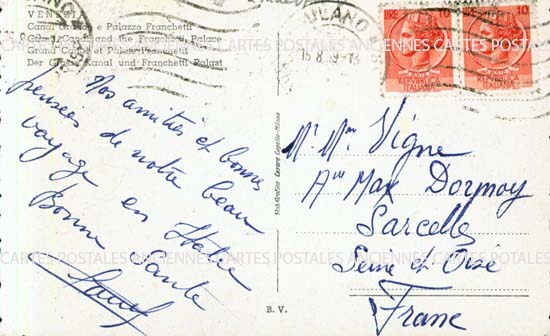 VENEZIA
Canal Grande e Palazzo Franchetti
Grand Canal and the Franchetti Palace
Grand Canal et Palais Franchetti
Der Grosse Kanal und Franchetti Palast
MILANO
15.8.59-14
LIRE 10
REPVBBLICA
ITALIANA
10
REPVBBLICA
ITALIANA
ANCIENNES CARTES POSTALES ANCIENNES CARTES POSTALES
Nos amitiés et bonnes
pensées de notre beau
voyage en Italie
Bonne Santé
Mr Mme Vigne
Ave Max Dormoy
Sarcelle
Seine et Oise
France
Stab. Grafico Cesare Capello - Milano
B. V.